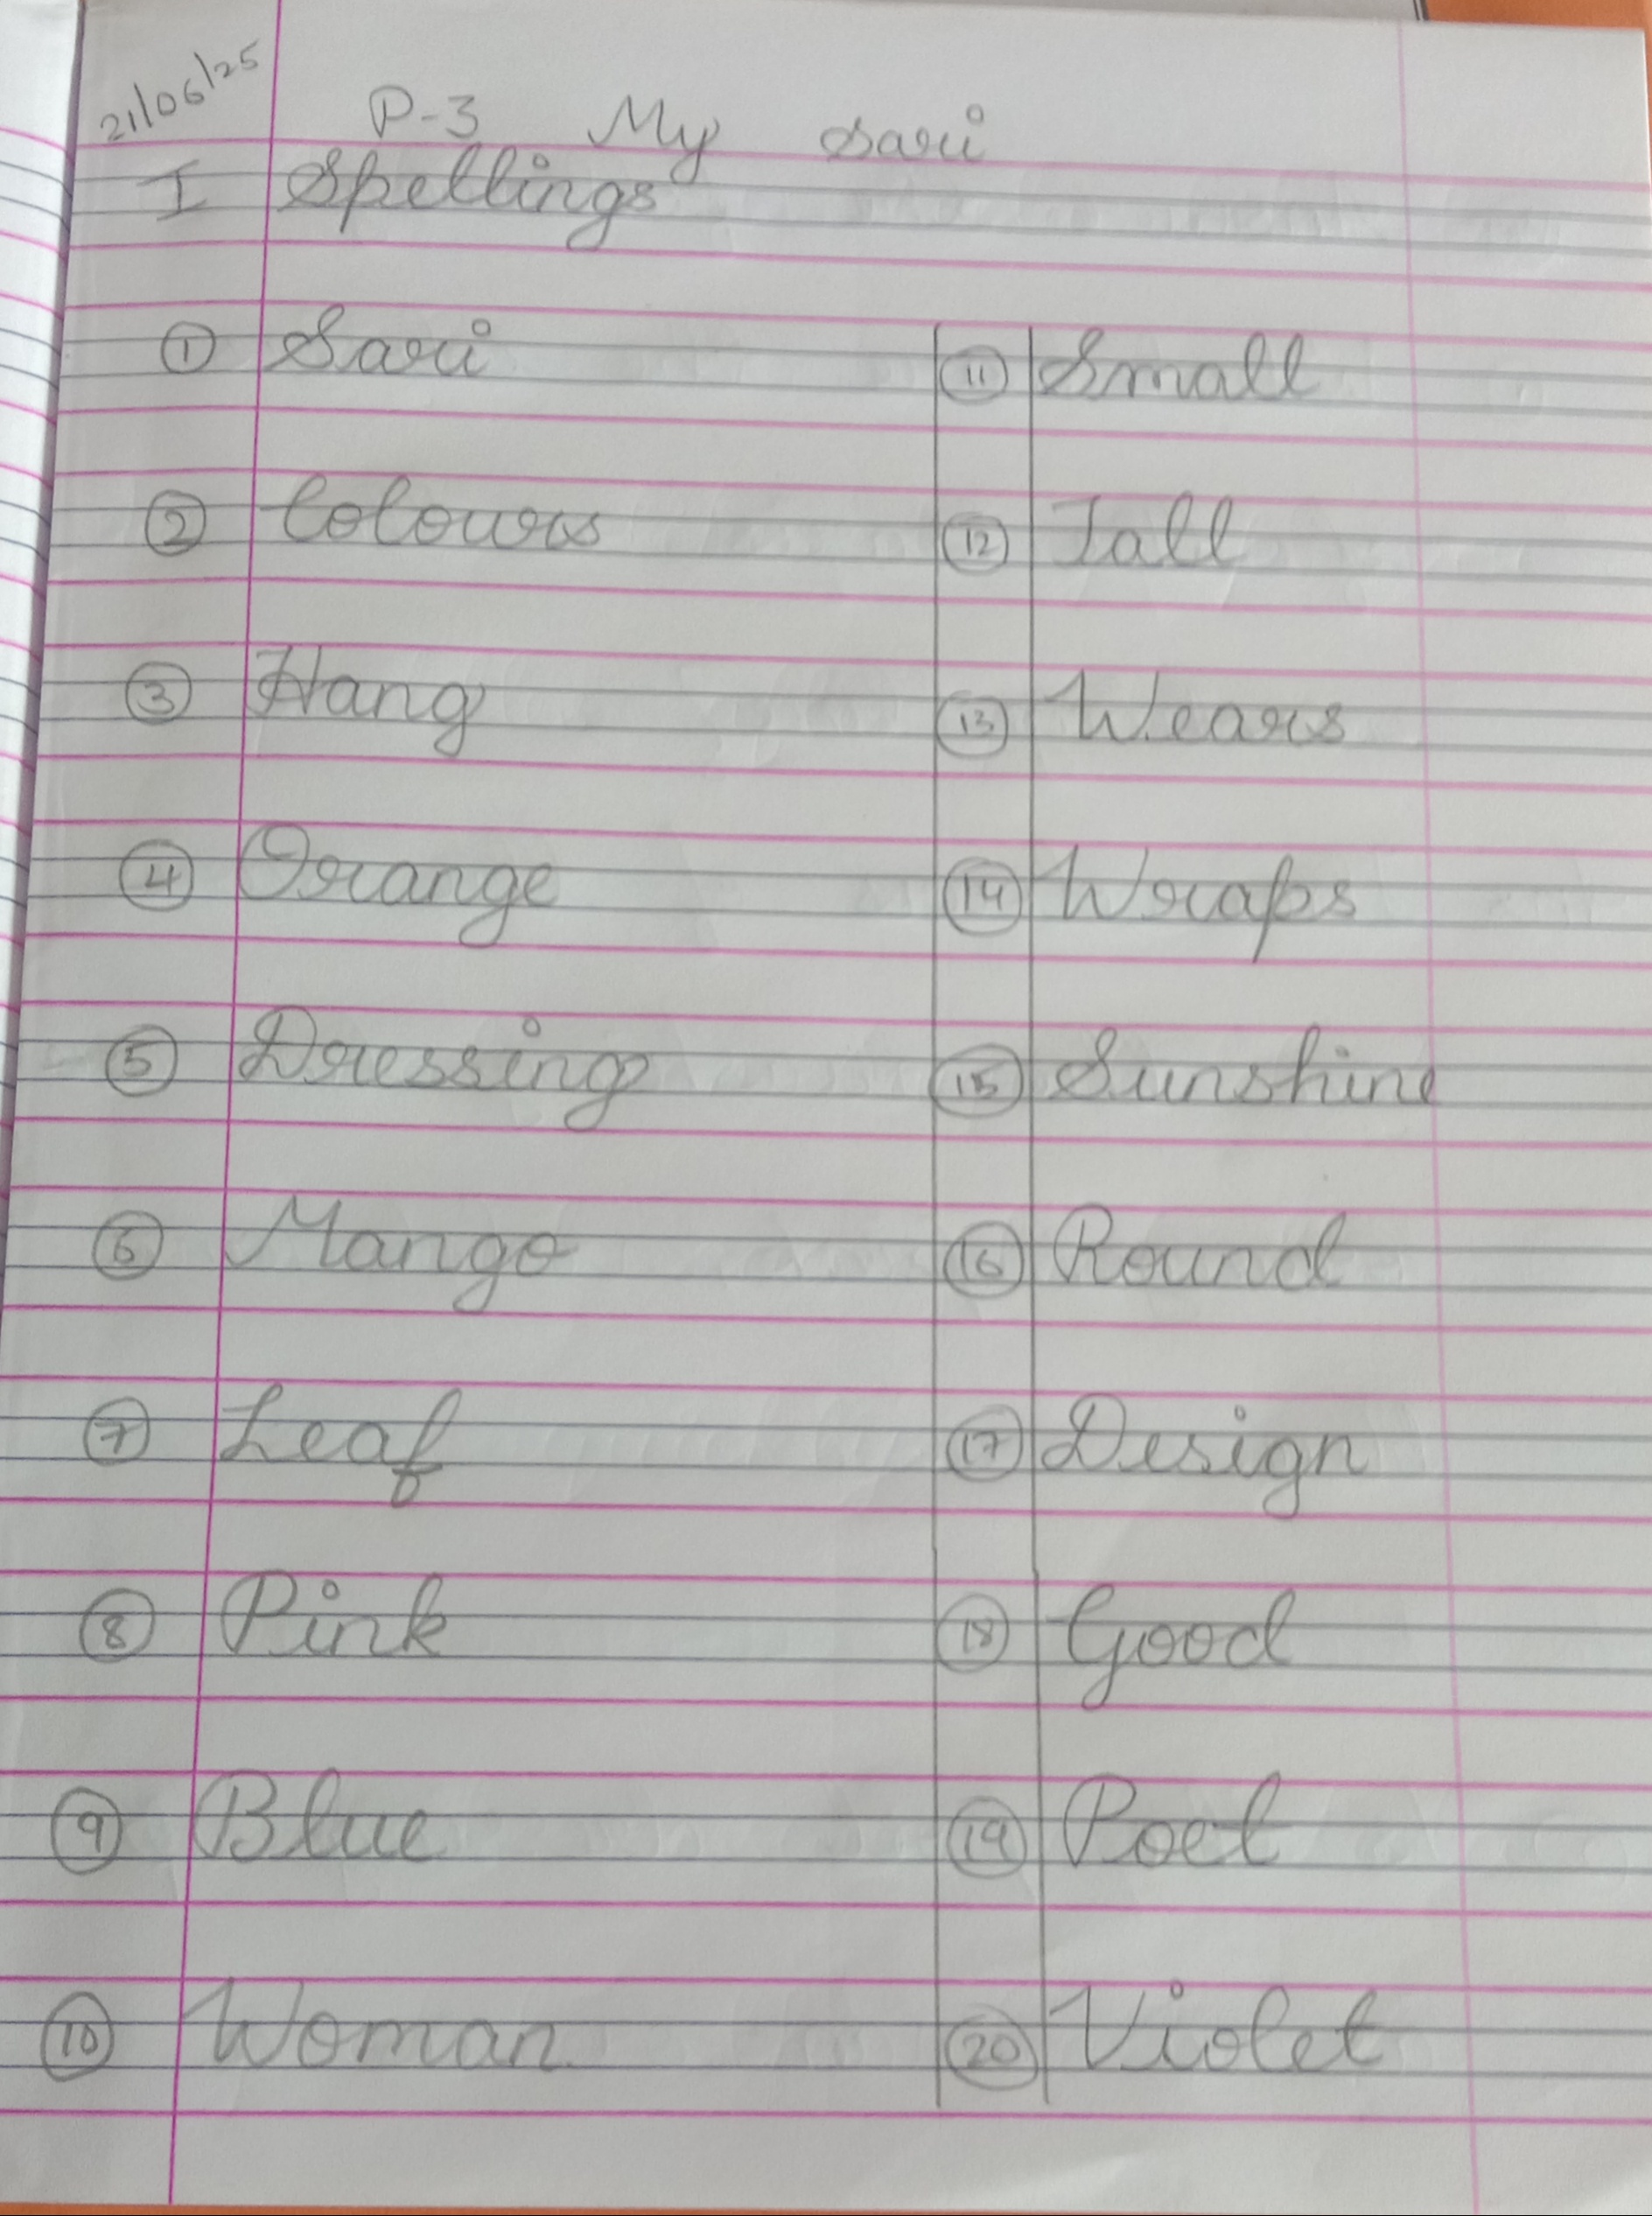 21/06/25
P-3 My sari
I Spellings
① Sari
② Colours
③ Hang
④ Orange
⑤ Dressing
⑥ Mango
⑦ Leaf
⑧ Pink
⑨ Blue
⑩ Woman
⑪ Small
⑫ Tall
⑬ Wears
⑭ Wraps
⑮ Sunshine
⑯ Round
⑰ Design
⑱ Good
⑲ Poet
⑳ Violet